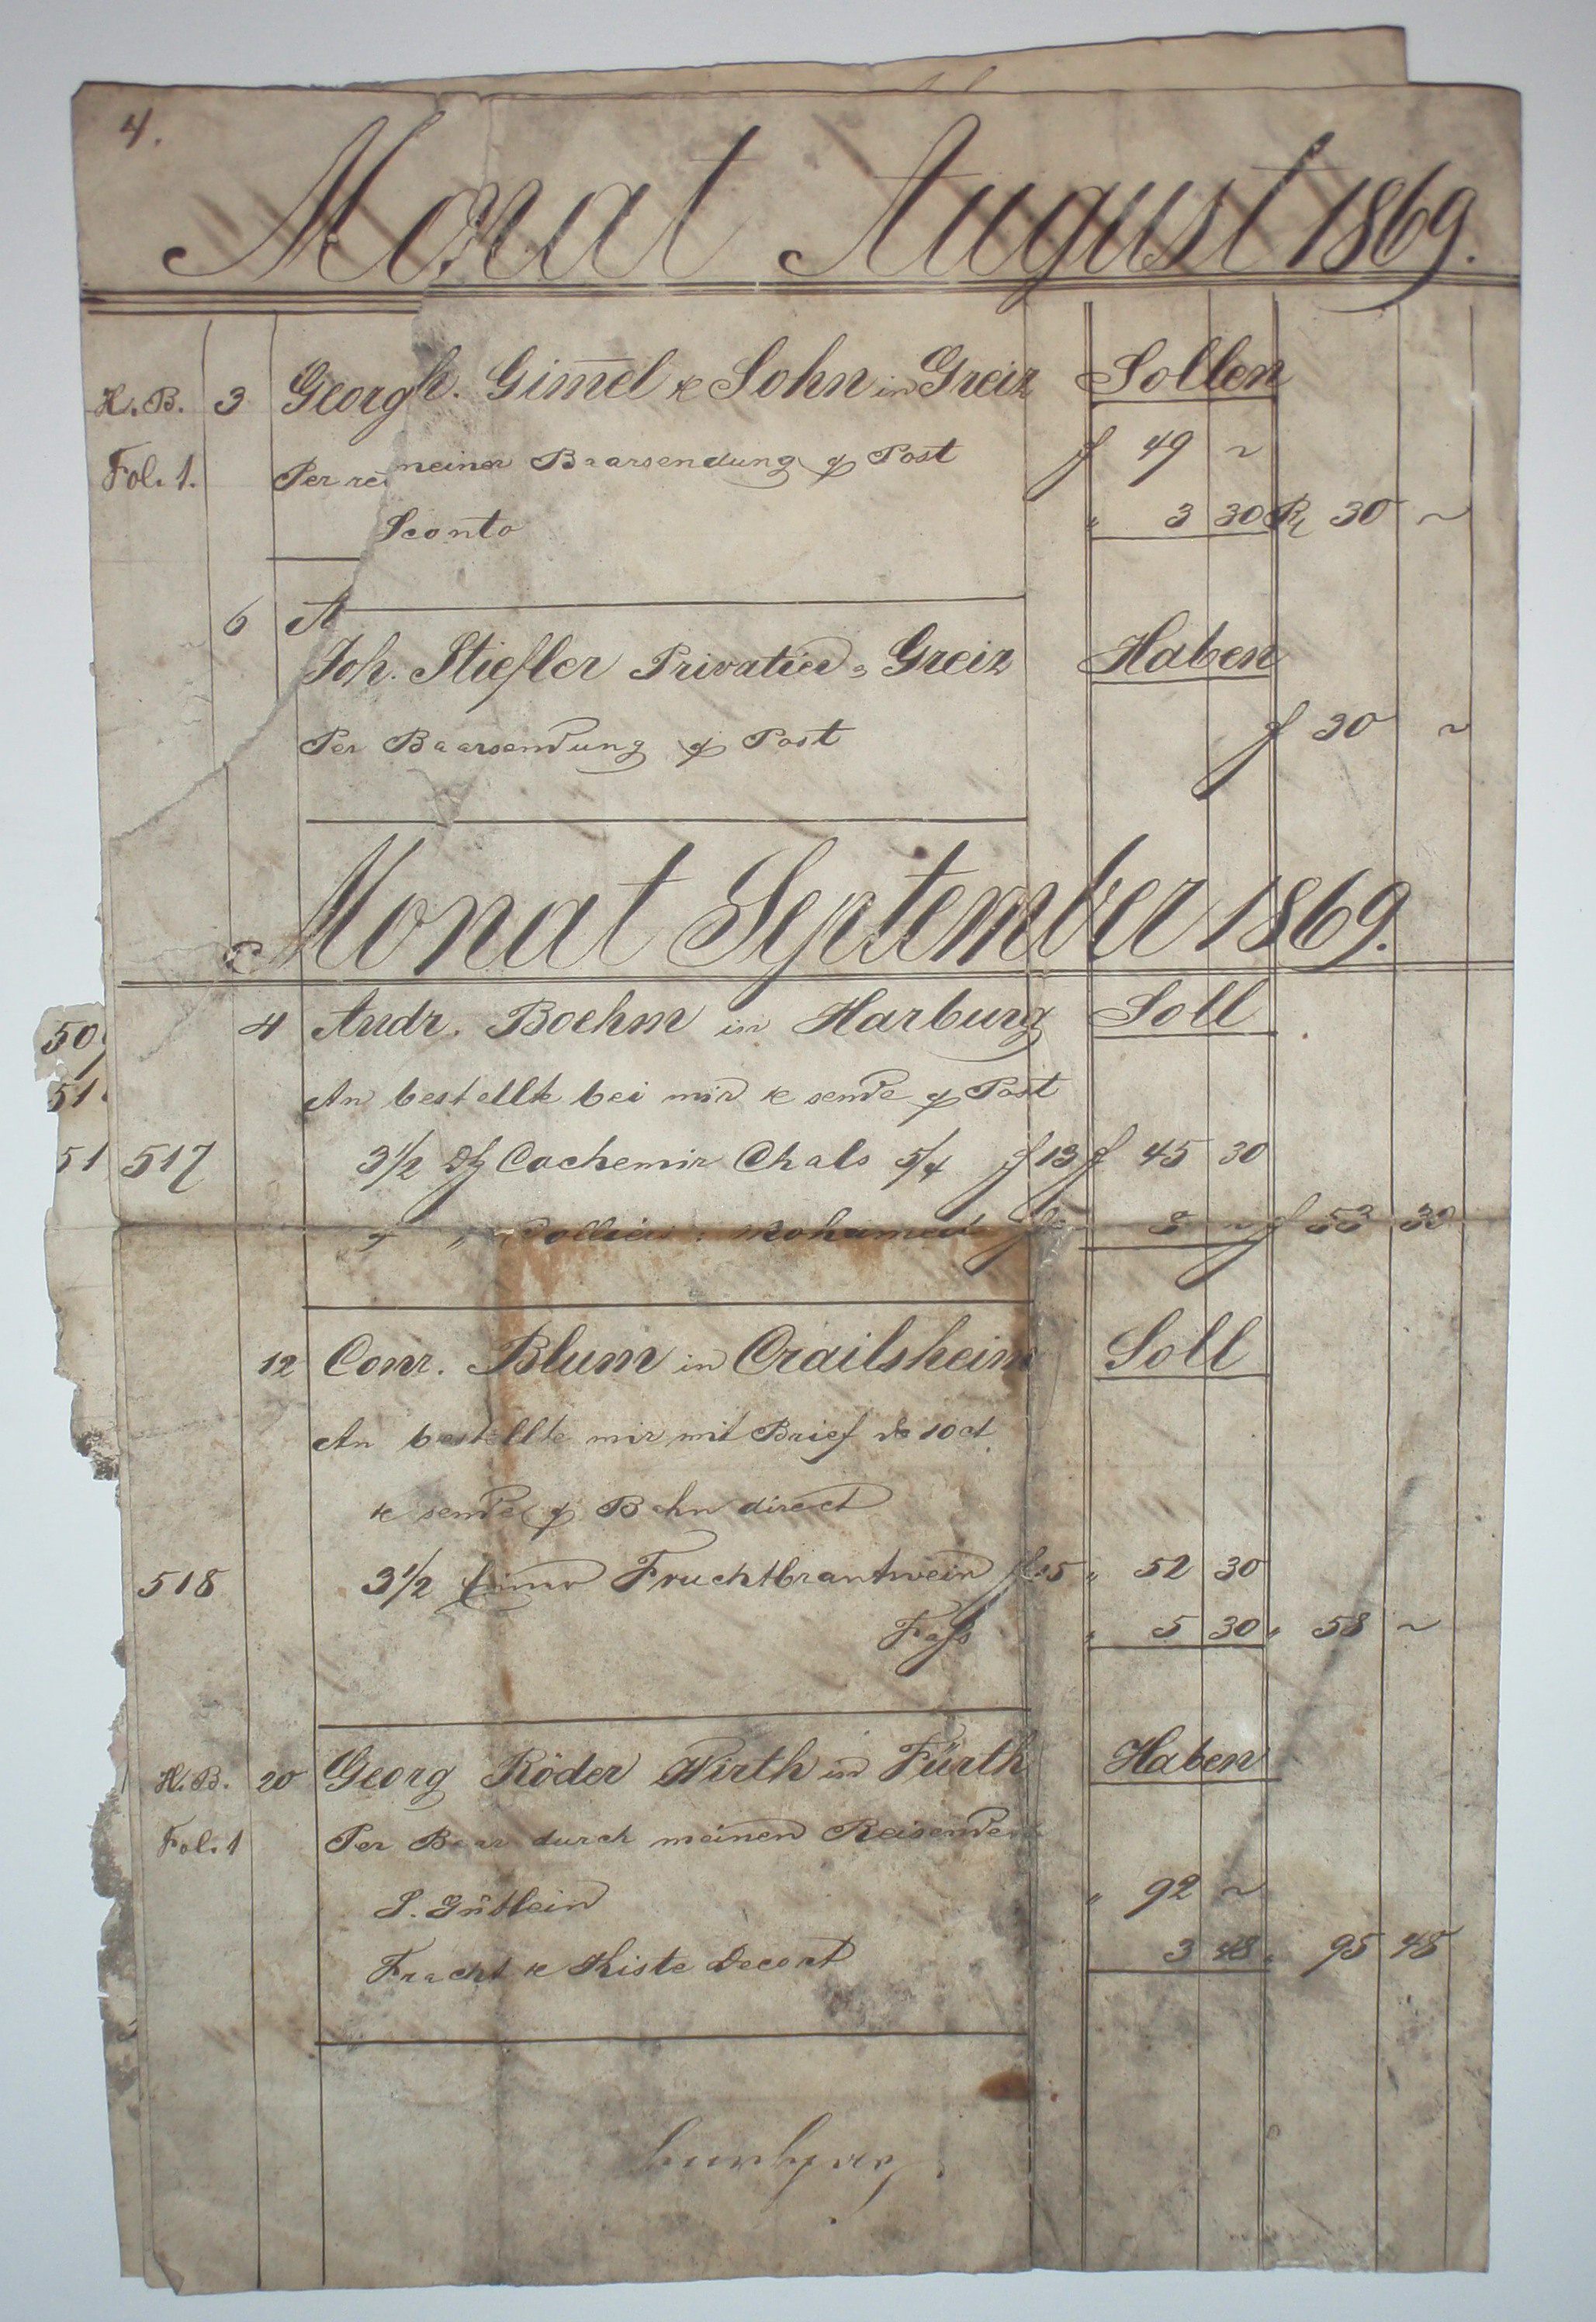 4.
Monat August 1869.
H. B. 3 Georgh. Gim̄el & Sohn in Greiz Sollen
Fol. 1. Per meiner Baarsendung p Post f 49 ~
Sconto " 3 30 30 ~
6
Joh. Stiefler Privatier Greiz Haben
Per Baarsendung p Post f 30 ~
Monat September 1869.
4 Andr. Boehm in Harburg Soll
An bestellte bei mir & sende p Post
50
51
51 517 3½ Dz Cachemir Chals 5/4 f 13 f 45 30
" Collier Mohamed 8 ~ f 53 30
12 Conr. Blum in Crailsheim Soll
An bestellte mir mit Brief do 10 ct
& sende p Bahn direct
518 3½ Eimer Fruchtbrantwein fl. 15 " 52 30
Faſs " 5 30 " 58 ~
H. B. 20 Georg Röder Wirth in Fürth Haben
Fol. 1 Per Baar durch meinen Reisenden
S. Gütlein " 92 ~
Fracht & Kiste Decort 3 48 " 95 48